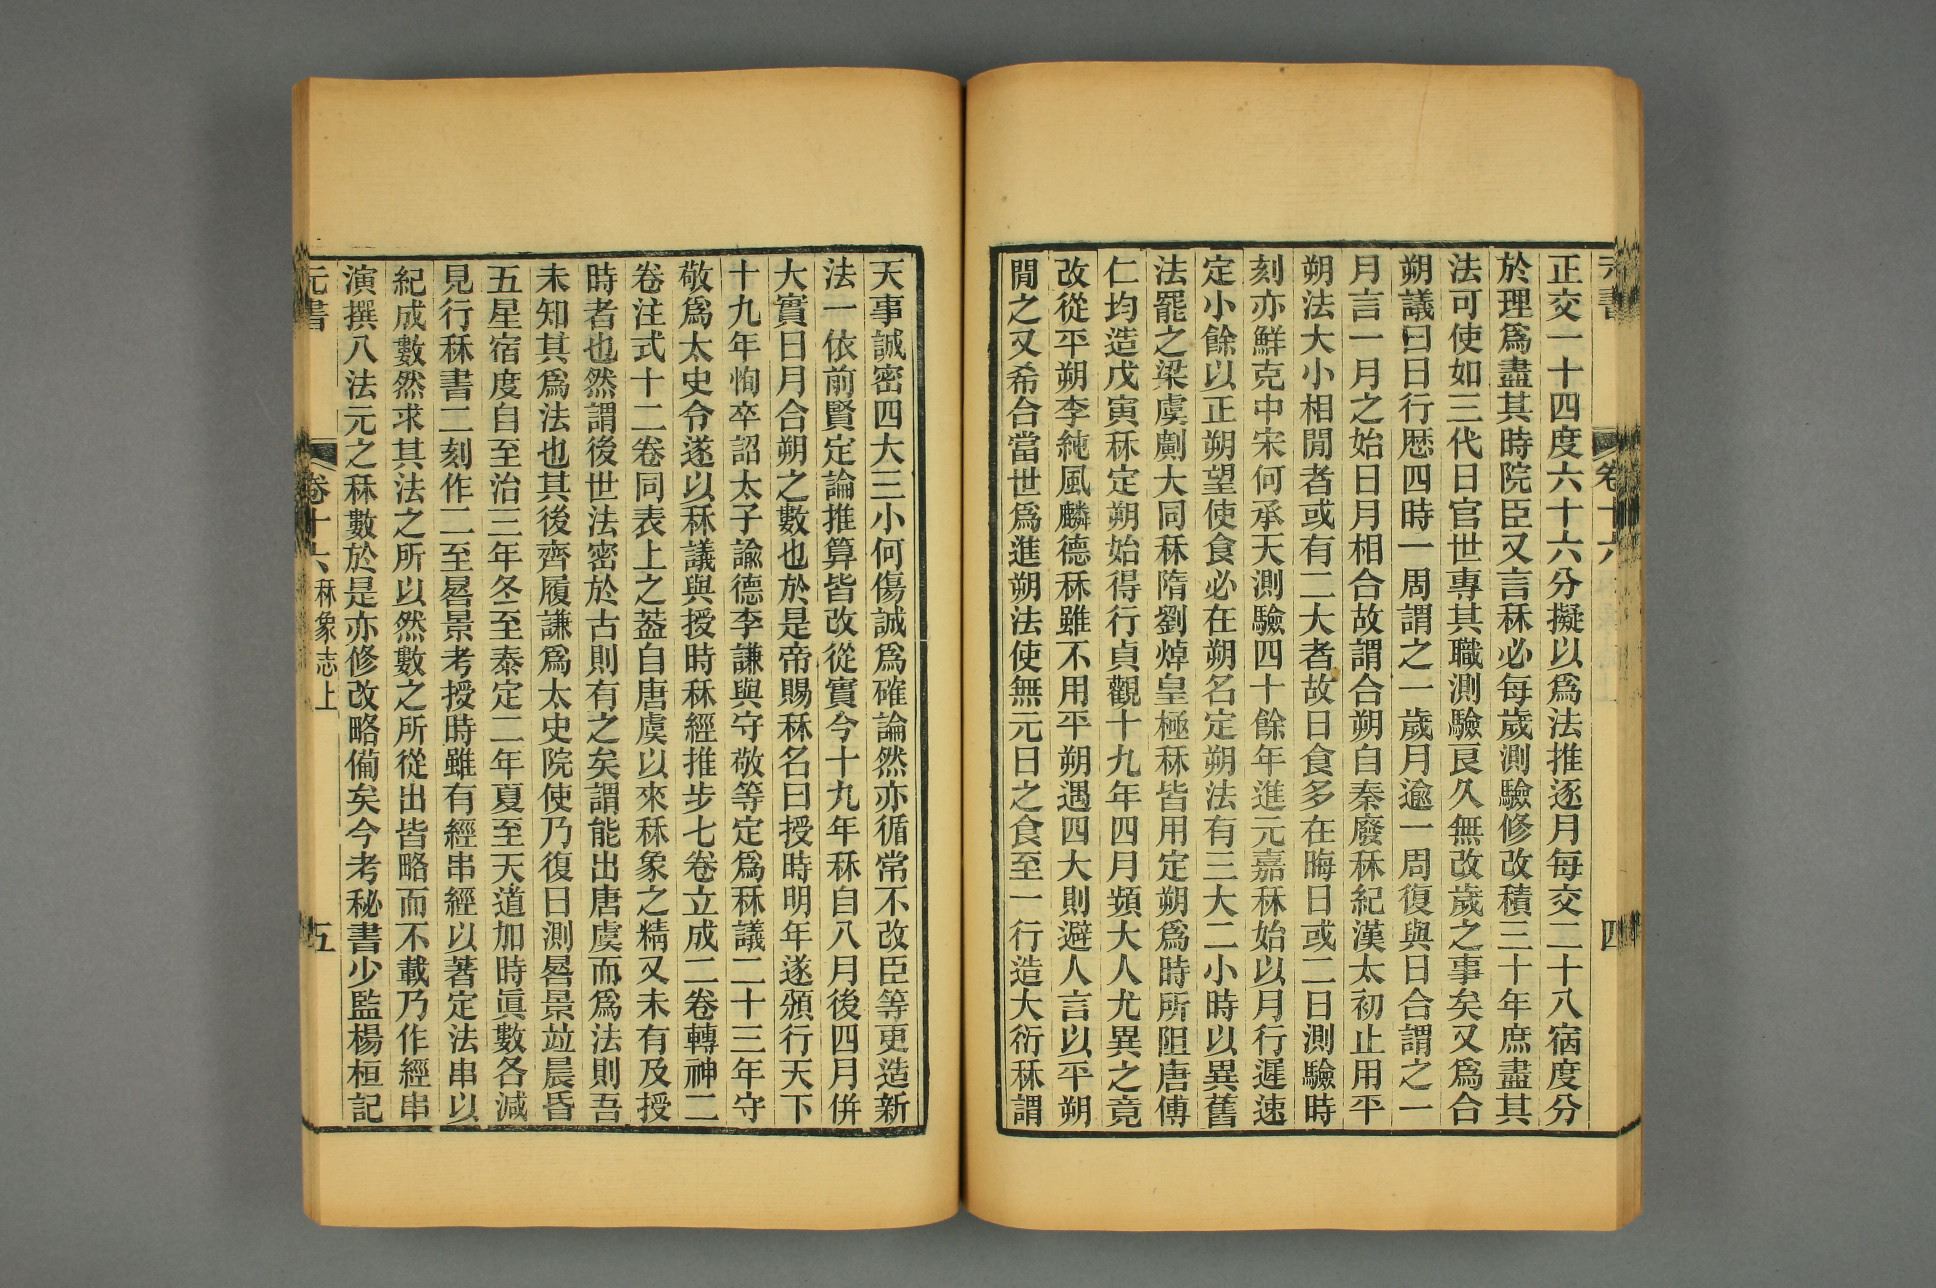 正交一十四度六十六分擬以爲法推逐月每交二十八宿度分
於理爲盡其時院臣又言秝必每歲測驗修改積三十年庶盡其
法可使如三代日官世專其職測驗良久無改歲之事矣又爲合
朔議曰日行歷四時一周謂之一歲月逾一周復與日合謂之一
月言一月之始日月相合故謂合朔自秦廢秝紀漢太初止用平
朔法大小相閒者或有二大者故日食多在晦日或二日測驗時
刻亦鮮克中宋何承天測驗四十餘年進元嘉秝始以月行遲速
定小餘以正朔望使食必在朔名定朔法有三大二小時以異舊
法罷之梁虞劆大同秝隋劉焯皇極秝皆用定朔爲時所阻唐傅
仁均造戊寅秝定朔始得行貞觀十九年四月頻大人尤異之竟
改從平朔李純風麟德秝雖不用平朔遇四大則避人言以平朔
閒之又希合當世爲進朔法使無元日之食至一行造大衍秝謂
元書
卷十六
四
天事誠密四大三小何傷誠爲確論然亦循常不改臣等更造新
法一依前賢定論推算皆改從實今十九年秝自八月後四月併
大實日月合朔之數也於是帝賜秝名曰授時明年遂頒行天下
十九年恂卒詔太子諭德李謙與守敬等定爲秝議二十三年守
敬爲太史令遂以秝議與授時秝經推步七卷立成二卷轉神二
卷注式十二卷同表上之葢自唐虞以來秝象之精又未有及授
時者也然謂後世法密於古則有之矣謂能出唐虞而爲法則吾
未知其爲法也其後齊履謙爲太史院使乃復日測晷景竝晨昏
五星宿度自至治三年冬至泰定二年夏至天道加時眞數各減
見行秝書二刻作二至晷景考授時雖有經串經以著定法串以
紀成數然求其法之所以然數之所從出皆略而不載乃作經串
演撰八法元之秝數於是亦修改略備矣今考秘書少監楊桓記
元書
卷十六秝象志上
五